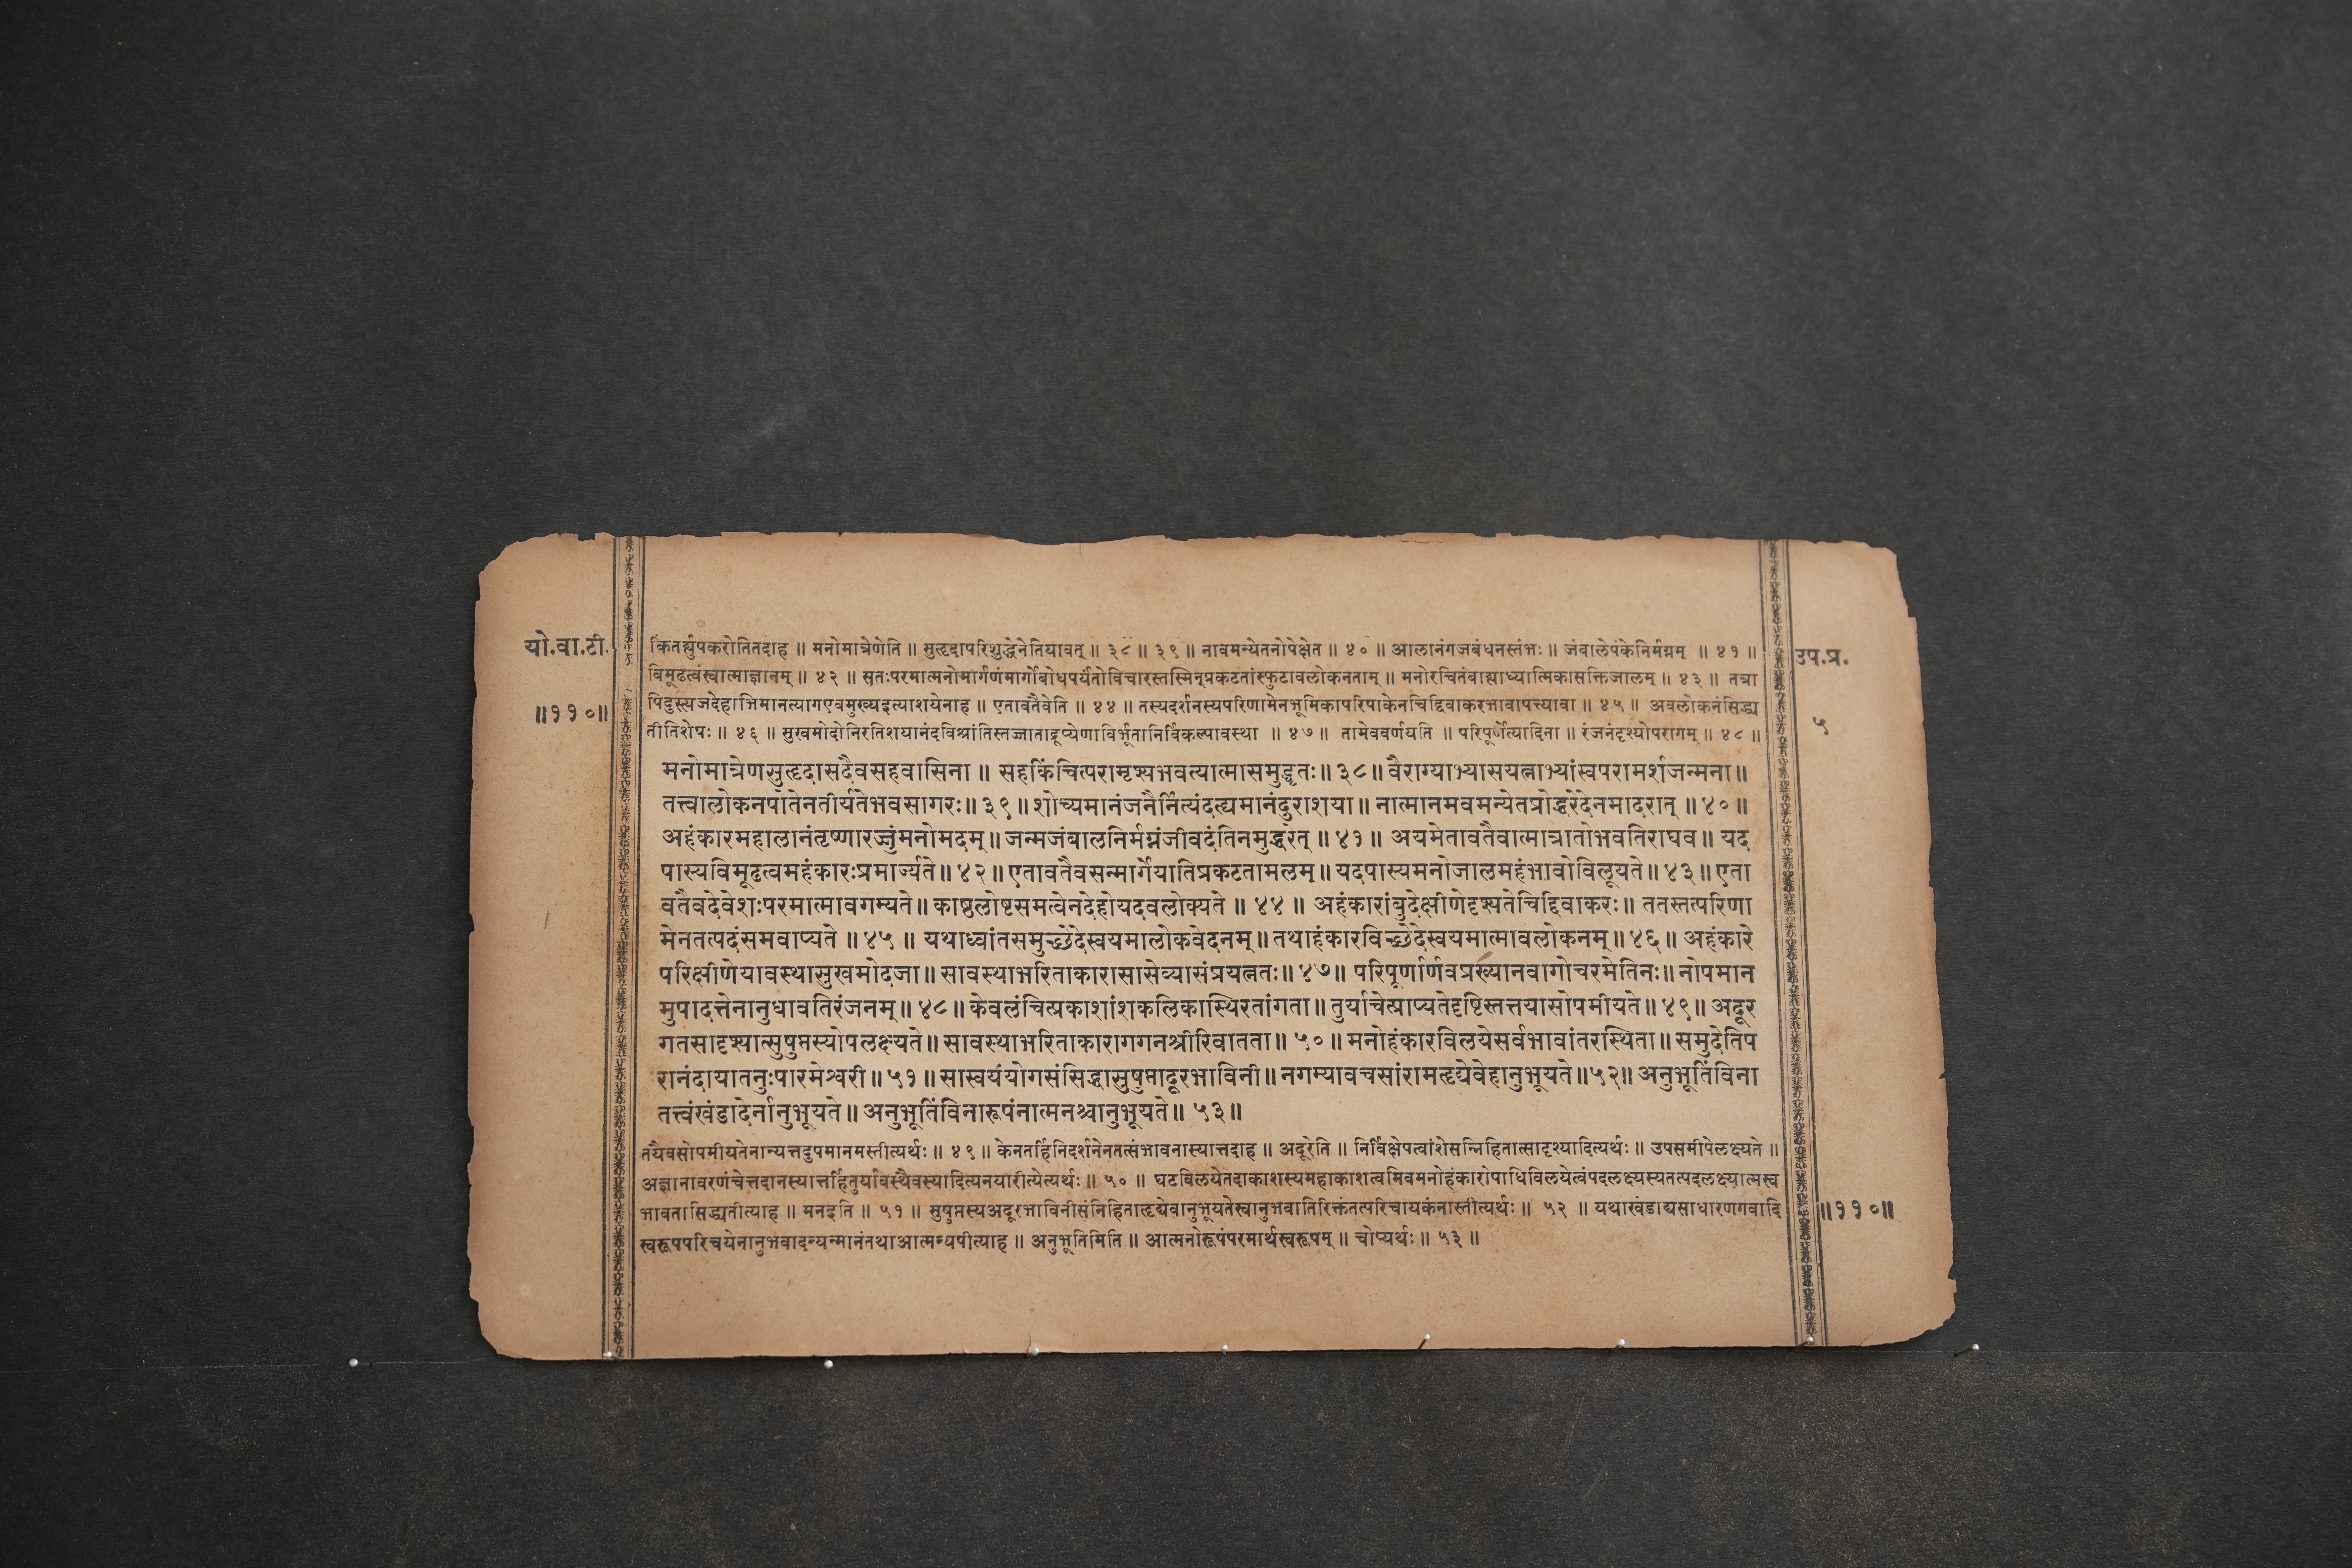 यो.वा.टी.
॥११०॥
उप.प्र.
५
किंतर्ह्युपकरोतितदाह ॥ मनोमात्रेणेति ॥ सुहृदापरिशुद्धेनेतियावत् ॥ ३८ ॥ ३९ ॥ नावमन्येतनोपेक्षेत ॥ ४० ॥ आलानंगजबंधनस्तंभः ॥ जंबालेपंकेनिर्मग्नम् ॥ ४१ ॥
विमूढत्वंस्वात्माज्ञानम् ॥ ४२ ॥ सतःपरमात्मनोमार्गणंमार्गोबोधपर्यंतोविचारस्तस्मिन्प्रकटतांस्फुटावलोकनताम् ॥ मनोरचितंबाह्याध्यात्मिकासक्तिजालम् ॥ ४३ ॥ तत्रा
पिदुस्त्यजदेहाभिमानत्यागएवमुख्यइत्याशयेनाह ॥ एतावतैवेति ॥ ४४ ॥ तस्यदर्शनस्यपरिणामेनभूमिकापरिपाकेनचिद्दिवाकरभावापत्त्यावा ॥ ४५ ॥ अवलोकनंसिद्ध्य
तीतिशेषः ॥ ४६ ॥ सुखमोदोनिरतिशयानंदविश्रांतिस्तज्जाताद्रूप्येणाविर्भूतानिर्विकल्पावस्था ॥ ४७ ॥ तामेववर्णयति ॥ परिपूर्णेत्यादिना ॥ रंजनंदृश्योपरागम् ॥ ४८ ॥
मनोमात्रेणसुहृदासदैवसहवासिना ॥ सहकिंचित्परामृश्यभवत्यात्मासमुद्धृतः ॥ ३८ ॥ वैराग्याभ्यासयत्नाभ्यांस्वपरामर्शजन्मना ॥
तत्त्वालोकनपोतेनतीर्यतेभवसागरः ॥ ३९ ॥ शोच्यमानंजनैर्नित्यंदह्यमानंदुराशया ॥ नात्मानमवमन्येतप्रोद्धरेदेनमादरात् ॥ ४० ॥
अहंकारमहालानंतृष्णारज्जुंमनोमदम् ॥ जन्मजंबालनिर्मग्नंजीवदंतिनमुद्धरेत् ॥ ४१ ॥ अयमेतावतैवात्मात्रातोभवतिराघव ॥ यद
पास्यविमूढत्वमहंकारःप्रमार्ज्यते ॥ ४२ ॥ एतावतैवसन्मार्गेयातिप्रकटतामलम् ॥ यदपास्यमनोजालमहंभावोविलूयते ॥ ४३ ॥ एता
वतैवदेवेशःपरमात्मावगम्यते ॥ काष्ठलोष्टसमत्वेनदेहोयदवलोक्यते ॥ ४४ ॥ अहंकारांबुदेक्षीणेदृश्यतेचिद्दिवाकरः ॥ ततस्तत्परिणा
मेनतत्पदंसमवाप्यते ॥ ४५ ॥ यथाध्वांतसमुच्छेदेस्वयमालोकवेदनम् ॥ तथाहंकारविच्छेदेस्वयमात्मावलोकनम् ॥ ४६ ॥ अहंकारे
परिक्षीणेयावस्थासुखमोदजा ॥ सावस्थाभरिताकारासासेव्यासंप्रयत्नतः ॥ ४७ ॥ परिपूर्णार्णवप्रख्यानवागोचरमेतिनः ॥ नोपमान
मुपादत्तेनानुधावतिरंजनम् ॥ ४८ ॥ केवलंचित्प्रकाशांशकलिकास्थिरतांगता ॥ तुर्याचेत्प्राप्यतेदृष्टिस्तत्तयासोपमीयते ॥ ४९ ॥ अदूर
गतसादृश्यात्सुषुप्तस्योपलक्ष्यते ॥ सावस्थाभरिताकारागगनश्रीरिवातता ॥ ५० ॥ मनोहंकारविलयेसर्वभावांतरस्थिता ॥ समुदेतिप
रानंदायातनुःपारमेश्वरी ॥ ५१ ॥ सास्वयंयोगसंसिद्धासुषुप्तादूरभाविनी ॥ नगम्यावचसांरामहृद्येवेहानुभूयते ॥ ५२ ॥ अनुभूतिंविना
तत्त्वंखंडादेर्नानुभूयते ॥ अनुभूतिंविनारूपंनात्मनश्चानुभूयते ॥ ५३ ॥
तयैवसोपमीयतेनान्यत्तदुपमानमस्तीत्यर्थः ॥ ४९ ॥ केनतर्हिनिदर्शनेनतत्संभावनास्यात्तदाह ॥ अदूरेति ॥ निर्विक्षेपत्वांशेसन्निहितात्सादृश्यादित्यर्थः ॥ उपसमीपेलक्ष्यते ॥
अज्ञानावरणंचेत्तदानस्यात्तर्हितुर्यावस्थैवस्यादित्यनयारीत्येत्यर्थः ॥ ५० ॥ घटविलयेतदाकाशस्यमहाकाशत्वमिवमनोहंकारोपाधिविलयेत्वंपदलक्ष्यस्यतत्पदलक्ष्यात्मस्व
भावतासिद्ध्यतीत्याह ॥ मनइति ॥ ५१ ॥ सुषुप्तस्यअदूरभाविनीसंनिहिताहृद्येवानुभूयतेस्वानुभवातिरिक्तंतत्परिचायकंनास्तीत्यर्थः ॥ ५२ ॥ यथाखंडाद्यसाधारणगवादि
स्वरूपपरिचयेनानुभवादन्यन्मानंतथाआत्मन्यपीत्याह ॥ अनुभूतिमिति ॥ आत्मनोरूपंपरमार्थस्वरूपम् ॥ चोप्यर्थः ॥ ५३ ॥
॥११०॥